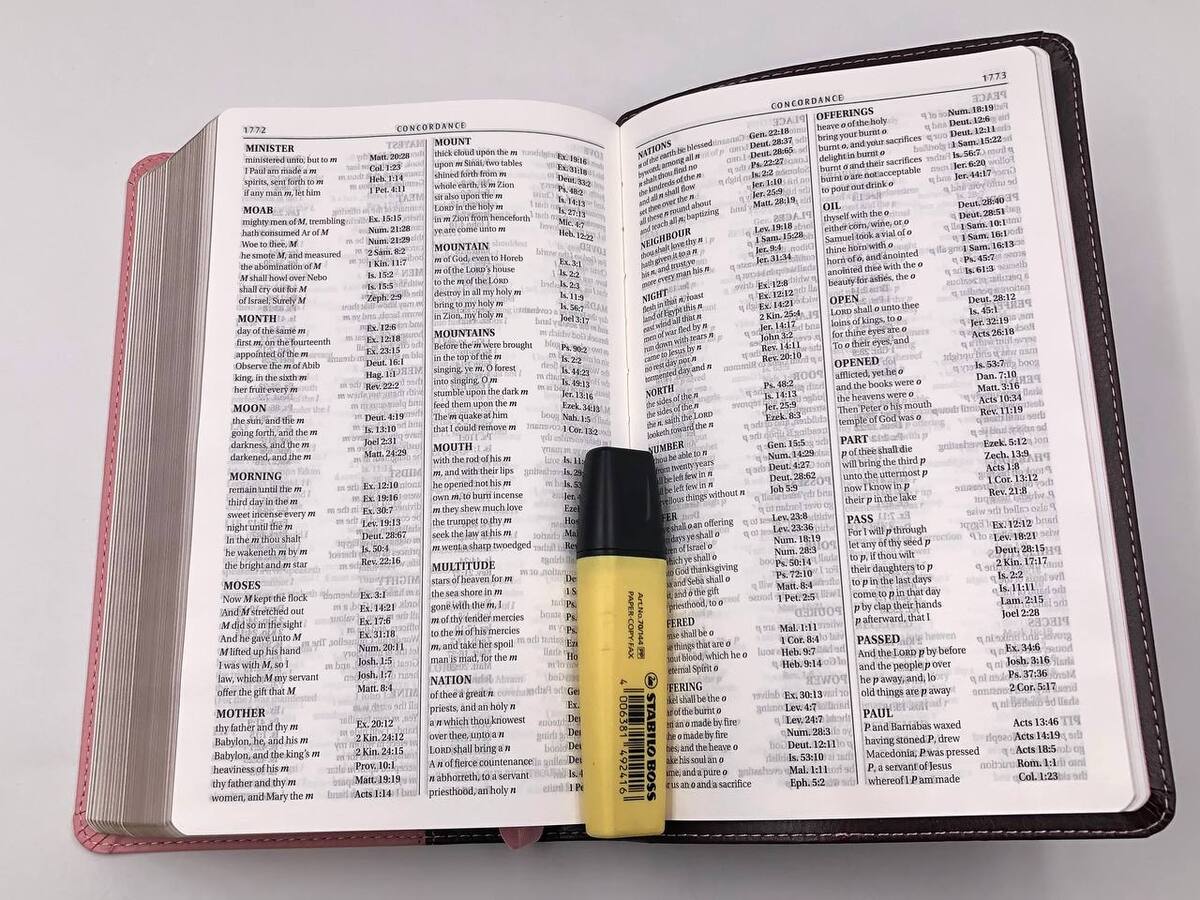 1772
CONCORDANCE
MINISTER
ministered unto, but to m Matt. 20:28
I Paul am made a m Col. 1:23
spirits, sent forth to m Heb. 1:14
if any man m, let him 1 Pet. 4:11
MOAB
mighty men of M, trembling Ex. 15:15
hath consumed Ar of M Num. 21:28
Woe to thee, M Num. 21:29
he smote M, and measured 2 Sam. 8:2
the abomination of M 1 Kin. 11:7
M shall howl over Nebo Is. 15:2
shall cry out for M Is. 15:5
of Israel, Surely M Zeph. 2:9
MONTH
day of the same m Ex. 12:6
first m, on the fourteenth Ex. 12:18
appointed of the m Ex. 23:15
Observe the m of Abib Deut. 16:1
king, in the sixth m Hag. 1:1
her fruit every m Rev. 22:2
MOON
the sun, and the m Deut. 4:19
going forth, and the m Is. 13:10
darkness, and the m Joel 2:31
darkened, and the m Matt. 24:29
MORNING
remain until the m Ex. 12:10
third day in the m Ex. 19:16
sweet incense every m Ex. 30:7
night until the m Lev. 19:13
In the m thou shalt Deut. 28:67
he wakeneth m by m Is. 50:4
the bright and m star Rev. 22:16
MOSES
Now M kept the flock Ex. 3:1
And M stretched out Ex. 14:21
M did so in the sight Ex. 17:6
And he gave unto M Ex. 31:18
M lifted up his hand Num. 20:11
I was with M, so I Josh. 1:5
law, which M my servant Josh. 1:7
offer the gift that M Matt. 8:4
MOTHER
thy father and thy m Ex. 20:12
Babylon, he, and his m 2 Kin. 24:12
Babylon, and the king's m 2 Kin. 24:15
heaviness of his m Prov. 10:1
thy father and thy m Matt. 19:19
women, and Mary the m Acts 1:14
MOUNT
thick cloud upon the m Ex. 19:16
upon m Sinai, two tables Ex. 31:18
shined forth from m Deut. 33:2
whole earth, is m Zion Ps. 48:2
sit also upon the m Is. 14:13
LORD in the holy m Is. 27:13
in m Zion from henceforth Mic. 4:7
ye are come unto m Heb. 12:22
MOUNTAIN
m of God, even to Horeb Ex. 3:1
m of the LORD's house Is. 2:2
to the m of the LORD Is. 2:3
destroy in all my holy m Is. 11:9
bring to my holy m Is. 56:7
in Zion, my holy m Joel 3:17
MOUNTAINS
Before the m were brought Ps. 90:2
in the top of the m Is. 2:2
singing, ye m, O forest Is. 44:23
into singing, O m Is. 49:13
stumble upon the dark m Jer. 13:16
feed them upon the m Ezek. 34:13
The m quake at him Nah. 1:5
that I could remove m 1 Cor. 13:2
MOUTH
with the rod of his m Is. 11:
m, and with their lips Is. 29:
he opened not his m Is. 53
own m, to burn incense Jer.
m they shew much love Ezek
the trumpet to thy m Hos
seek the law at his m Ma
m went a sharp twoedged Rev
MULTITUDE
stars of heaven for m De
the sea shore in m
gone with the m, I Ps.
m of thy tender mercies Ps.
to the m of his mercies
m, and take her spoil
man is mad, for the m Ho
NATION
of thee a great n Gen
priests, and an holy n Ex.
a n which thou knowest De
over thee, unto a n De
LORD shall bring a n De
A n of fierce countenance De
n abhorreth, to a servant Is. 4
priesthood, an holy n 1 Pe
CONCORDANCE
1773
NATIONS
n of the earth be blessed Gen. 22:18
byword, among all n Deut. 28:37
n shalt thou find no Deut. 28:65
the kindreds of the n Ps. 22:27
and all n shall flow Is. 2:2
set thee over the n Jer. 1:10
all these n round about Jer. 25:9
and teach all n, baptizing Matt. 28:19
NEIGHBOUR
thou shalt love thy n Lev. 19:18
hath given it to a n 1 Sam. 15:28
his n, and trust ye Jer. 9:4
more every man his n Jer. 31:34
NIGHT
flesh in that n, roast Ex. 12:8
land of Egypt this n Ex. 12:12
east wind all that n Ex. 14:21
men of war fled by n 2 Kin. 25:4
run down with tears n Jer. 14:17
came to Jesus by n John 3:2
no rest day nor n Rev. 14:11
tormented day and n Rev. 20:10
NORTH
the sides of the n Ps. 48:2
the sides of the n Is. 14:13
the n, saith the LORD Jer. 25:9
looketh toward the n Ezek. 8:3
NUMBER
thou be able to n Gen. 15:5
from twenty years Num. 14:29
be left few in n Deut. 4:27
ll be left few in n Deut. 28:62
vellous things without n Job 5:9
FER
ye shall o an offering Lev. 23:8
days ye shall o Lev. 23:36
ren of Israel o Num. 18:19
which ye shall o Num. 28:3
to God thanksgiving Ps. 50:14
a and Seba shall o Ps. 72:10
and o the gift Matt. 8:4
priesthood, to o 1 Pet. 2:5
FERED
ense shall be o Mal. 1:11
e things that are o 1 Cor. 8:4
hout blood, which he o Heb. 9:7
eternal Spirit o Heb. 9:14
FERING
shall be the o Ex. 30:13
ar of the burnt o Lev. 4:7
an o made by fire Lev. 24:7
o made by fire Num. 28:3
es, and the heave o Deut. 12:11
ke his soul an o Is. 53:10
me, and a pure o Mal. 1:11
r us an o and a sacrifice Eph. 5:2
OFFERINGS
heave o of the holy Num. 18:19
bring your burnt o Deut. 12:6
burnt o, and your sacrifices Deut. 12:11
delight in burnt o 1 Sam. 15:22
burnt o and their sacrifices Is. 56:7
burnt o are not acceptable Jer. 6:20
to pour out drink o Jer. 44:17
OIL
thyself with the o Deut. 28:40
either corn, wine, or o Deut. 28:51
Samuel took a vial of o 1 Sam. 10:1
thine horn with o 1 Sam. 16:1
horn of o, and anointed 1 Sam. 16:13
anointed thee with the o Ps. 45:7
beauty for ashes, the o Is. 61:3
OPEN
LORD shall o unto thee Deut. 28:12
loins of kings, to o Is. 45:1
for thine eyes are o Jer. 32:19
To o their eyes, and Acts 26:18
OPENED
afflicted, yet he o Is. 53:7
and the books were o Dan. 7:10
the heavens were o Matt. 3:16
Then Peter o his mouth Acts 10:34
temple of God was o Rev. 11:19
PART
p of thee shall die Ezek. 5:12
will bring the third p Zech. 13:9
unto the uttermost p Acts 1:8
now I know in p 1 Cor. 13:12
their p in the lake Rev. 21:8
PASS
For I will p through Ex. 12:12
let any of thy seed p Lev. 18:21
to p, if thou wilt Deut. 28:15
their daughters to p 2 Kin. 17:17
to p in the last days Is. 2:2
come to p in that day Is. 11:11
p by clap their hands Lam. 2:15
p afterward, that I Joel 2:28
PASSED
And the LORD p by before Ex. 34:6
and the people p over Josh. 3:16
he p away, and, lo Ps. 37:36
old things are p away 2 Cor. 5:17
PAUL
P and Barnabas waxed Acts 13:46
having stoned P, drew Acts 14:19
Macedonia, P was pressed Acts 18:5
P, a servant of Jesus Rom. 1:1
whereof I P am made Col. 1:23
Art.No.70/144
PAPER-COPY-FAX
STABILO BOSS
4 006381 492416